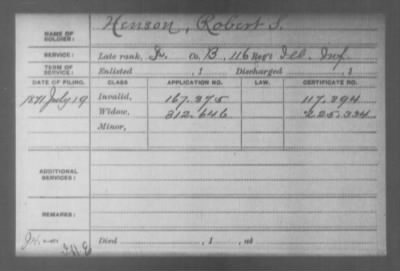 NAME OF SOLDIER: Henson, Robert S.
SERVICE: Late rank, Co. B, 116 Reg't Ill. Inf.
TERM OF SERVICE: Enlisted , 1 Discharged , 1
DATE OF FILING. CLASS APPLICATION NO. LAW. CERTIFICATE NO.
1871 July 19 Invalid, 167.375 117.394
Widow, 312.646 225.334
Minor,
ADDITIONAL SERVICES:
REMARKS:
Died , 1 , at